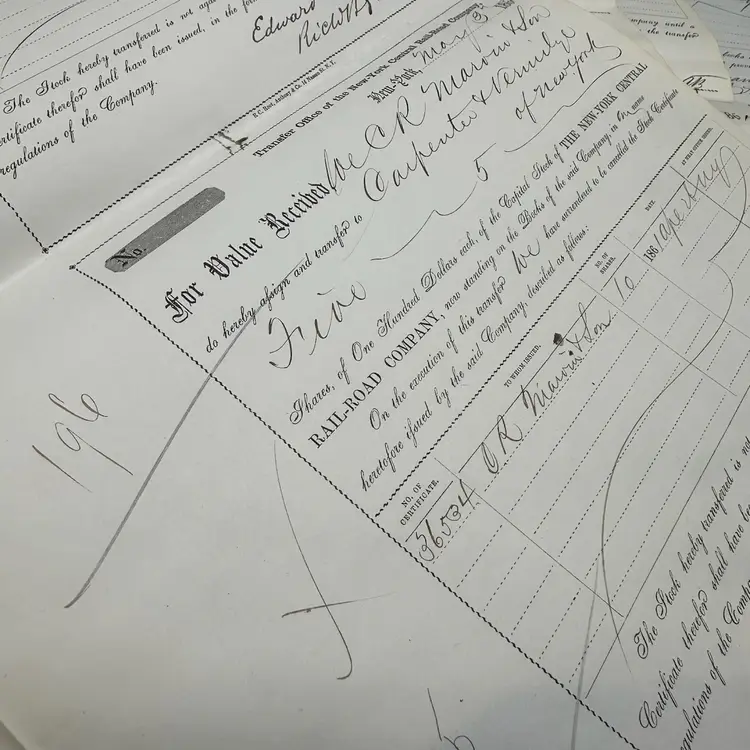 Edward
The Stock hereby transferred is not
Certificate therefor shall have been issued, in the
regulations of the Company.
Transfer Office of the New-York Central Rail-Road Company,
New-York, May 3
No.
For Value Received We C R Marvin & Son
do hereby assign and transfer to Carpenter &
of New York
Five 5
Shares, of One Hundred Dollars each, of the Capital Stock of THE NEW-YORK CENTRAL
RAIL-ROAD COMPANY, now standing on the Books of the said Company, in name
On the execution of this transfer We have surrendered to be cancelled the Stock Certificate
heretofore issued by the said Company, described as follows:
NO. OF CERTIFICATE. TO WHOM ISSUED. NO. OF SHARES. DATE.
36534 C R Marvin & Son 10 186
The Stock hereby transferred is
Certificate therefor shall have
regulations of the
196